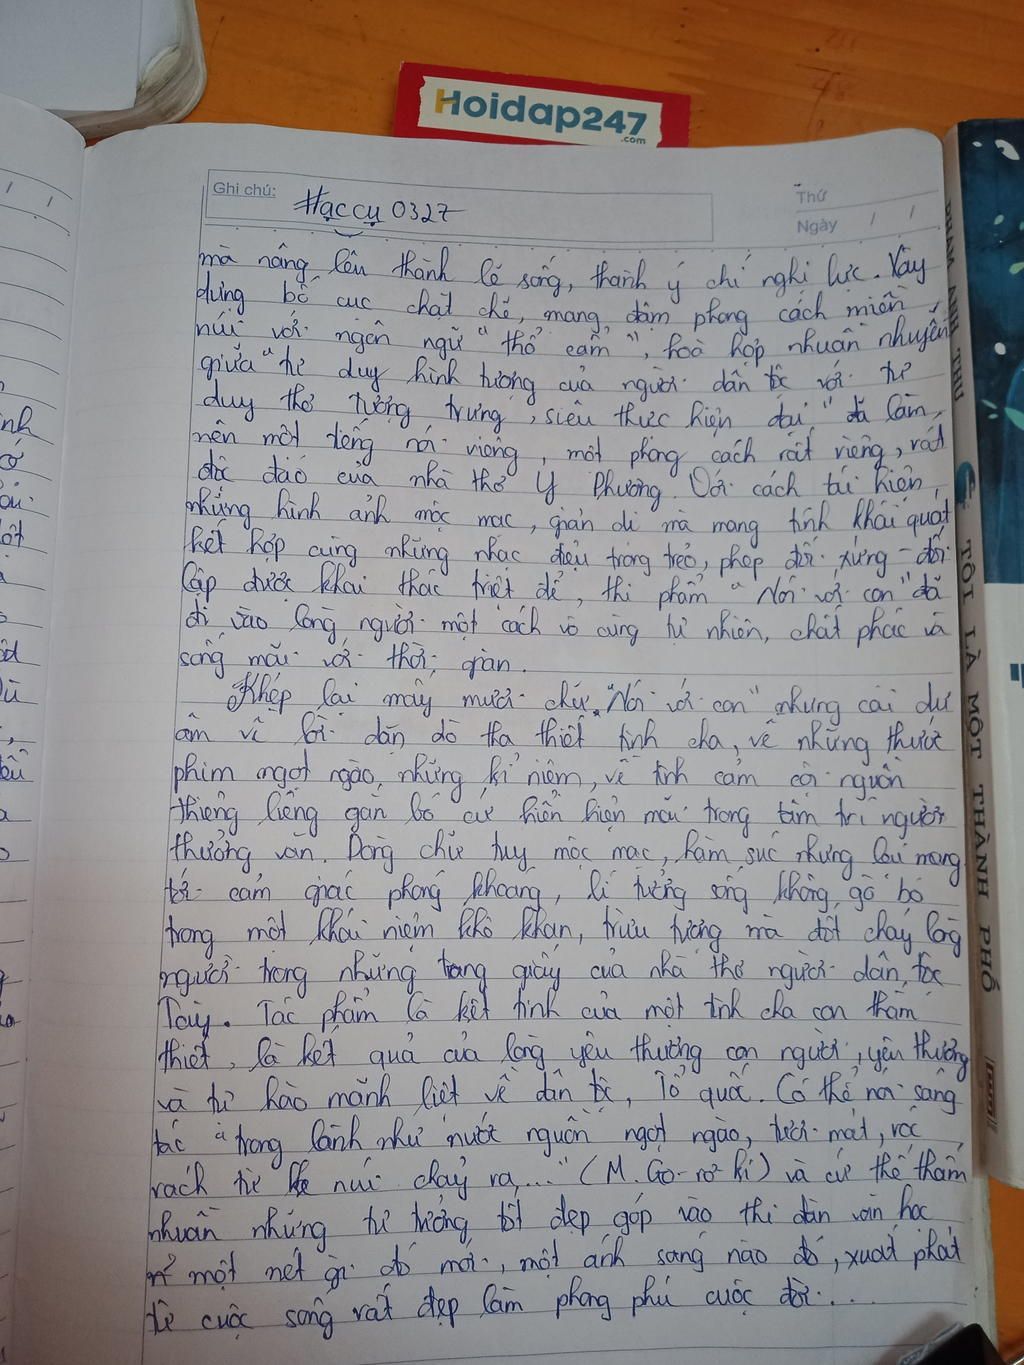 Hoidap247
.com
Ghi chú:
Hạc cụ 0327
Thứ
Ngày / /
mà nâng lên thành lẽ sống, thành ý chí nghị lực. Xây
dựng bố cục chặt chẽ, mang đậm phong cách miền
núi với ngôn ngữ "thổ cẩm", hoà hợp nhuần nhuyễn
giữa "tư duy hình tượng của người dân tộc với tư
duy thơ tượng trưng, siêu thực hiện đại" đã làm
nên một tiếng nói riêng, một phong cách rất riêng, rất
độc đáo của nhà thơ Y Phương. Với cách tái hiện
những hình ảnh mộc mạc, giản dị mà mang tính khái quát
kết hợp cùng những nhạc điệu trong trẻo, phép đối xứng - đối
lập được khai thác triệt để, thi phẩm "Nói với con" đã
đi vào lòng người một cách vô cùng tự nhiên, chất phác và
sống mãi với thời gian.
Khép lại mấy mươi chữ "Nói với con" nhưng cái dư
âm về lời dặn dò tha thiết tình cha, về những thước
phim ngọt ngào, những kỉ niệm, về tình cảm cội nguồn
thiêng liêng gắn bó cứ hiển hiện mãi trong tâm trí người
thưởng văn. Dòng chữ tuy mộc mạc, hàm súc nhưng lại mang
tới cảm giác phóng khoáng, lí tưởng sống không gò bó
trong một khái niệm khô khan, trừu tượng mà đốt cháy lòng
người trong những trang giấy của nhà thơ người dân tộc
Tày. Tác phẩm là kết tinh của một tình cha con thắm
thiết, là kết quả của lòng yêu thương con người, yêu thương
và tự hào mãnh liệt về dân tộc, Tổ quốc. Có thể nói sáng
tác "trong lành như nước nguồn ngọt ngào, tươi mát, róc
rách từ khe núi chảy ra,..." (M. Go-rơ-ki) và cứ thế thấm
nhuần những tư tưởng tốt đẹp góp vào thi đàn văn học
một nét gì đó mới, một ánh sáng nào đó, xuất phát
từ cuộc sống rất đẹp làm phong phú cuộc đời...
TỐT LÀ MỘT THÀNH PHỐ